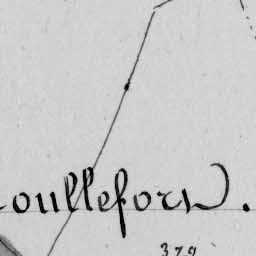 oulleforw.
379